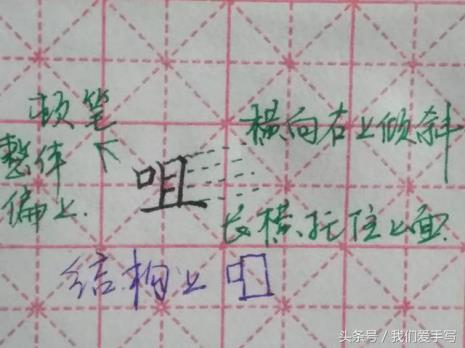 顿笔
整体
偏上.
咀
横向右上倾斜
长横托住上面.
结构上
头条号/我们爱手写